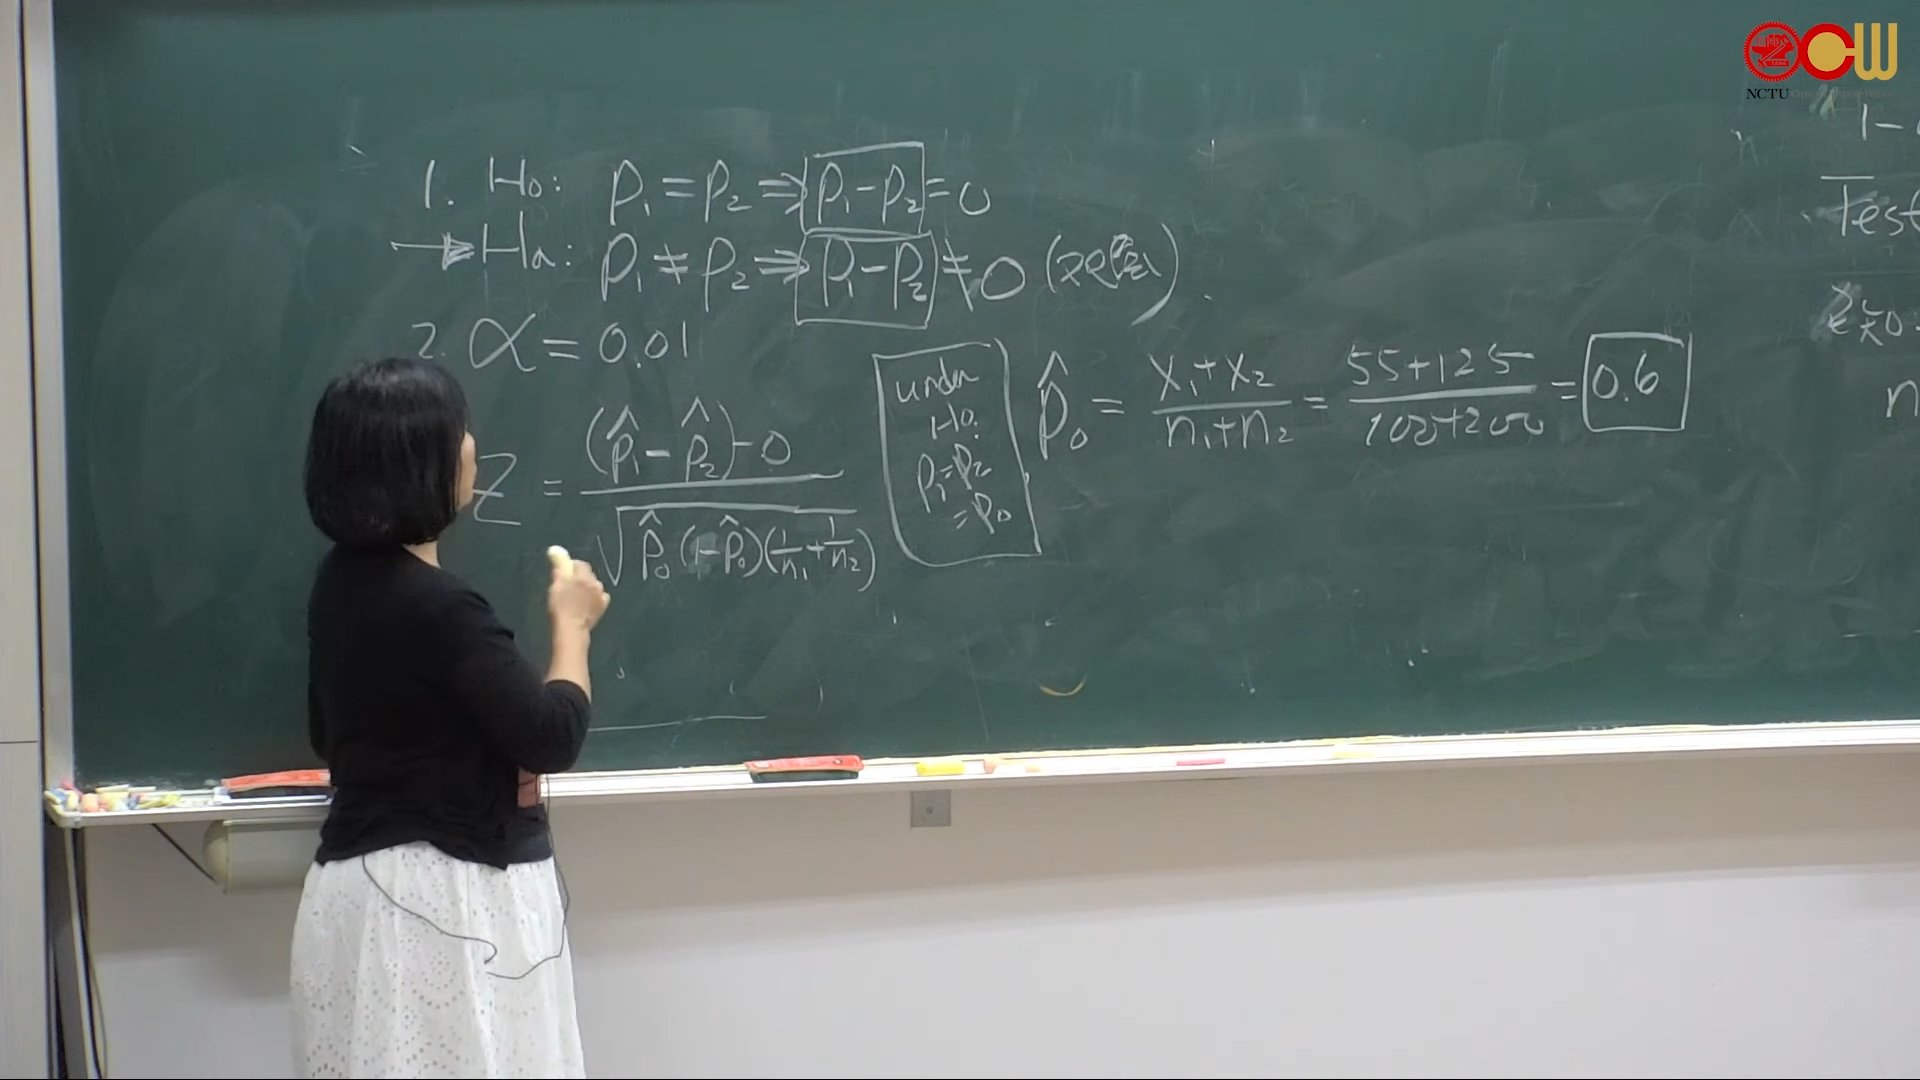 1. H₀: p₁ = p₂ ⇒ p₁-p₂ = 0
→ Ha: p₁ ≠ p₂ ⇒ p₁-p₂ ≠ 0
2. α = 0.01
Z = (p̂₁-p̂₂)-0 / √p̂₀(1-p̂₀)(1/n₁+1/n₂)
under
H₀.
p₁=p₂
=p₀
p̂₀ = x₁+x₂ / n₁+n₂ = 55+125 / 100+200 = 0.6
1-
Test
n
NCTU